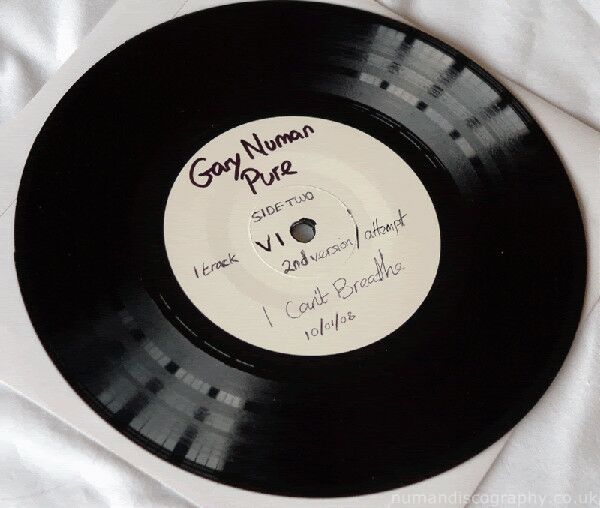 Gary Numan
Pure
SIDE-TWO
V1
1 track
2nd version/attempt
I Can't Breathe
10/01/08
numandiscography.co.uk